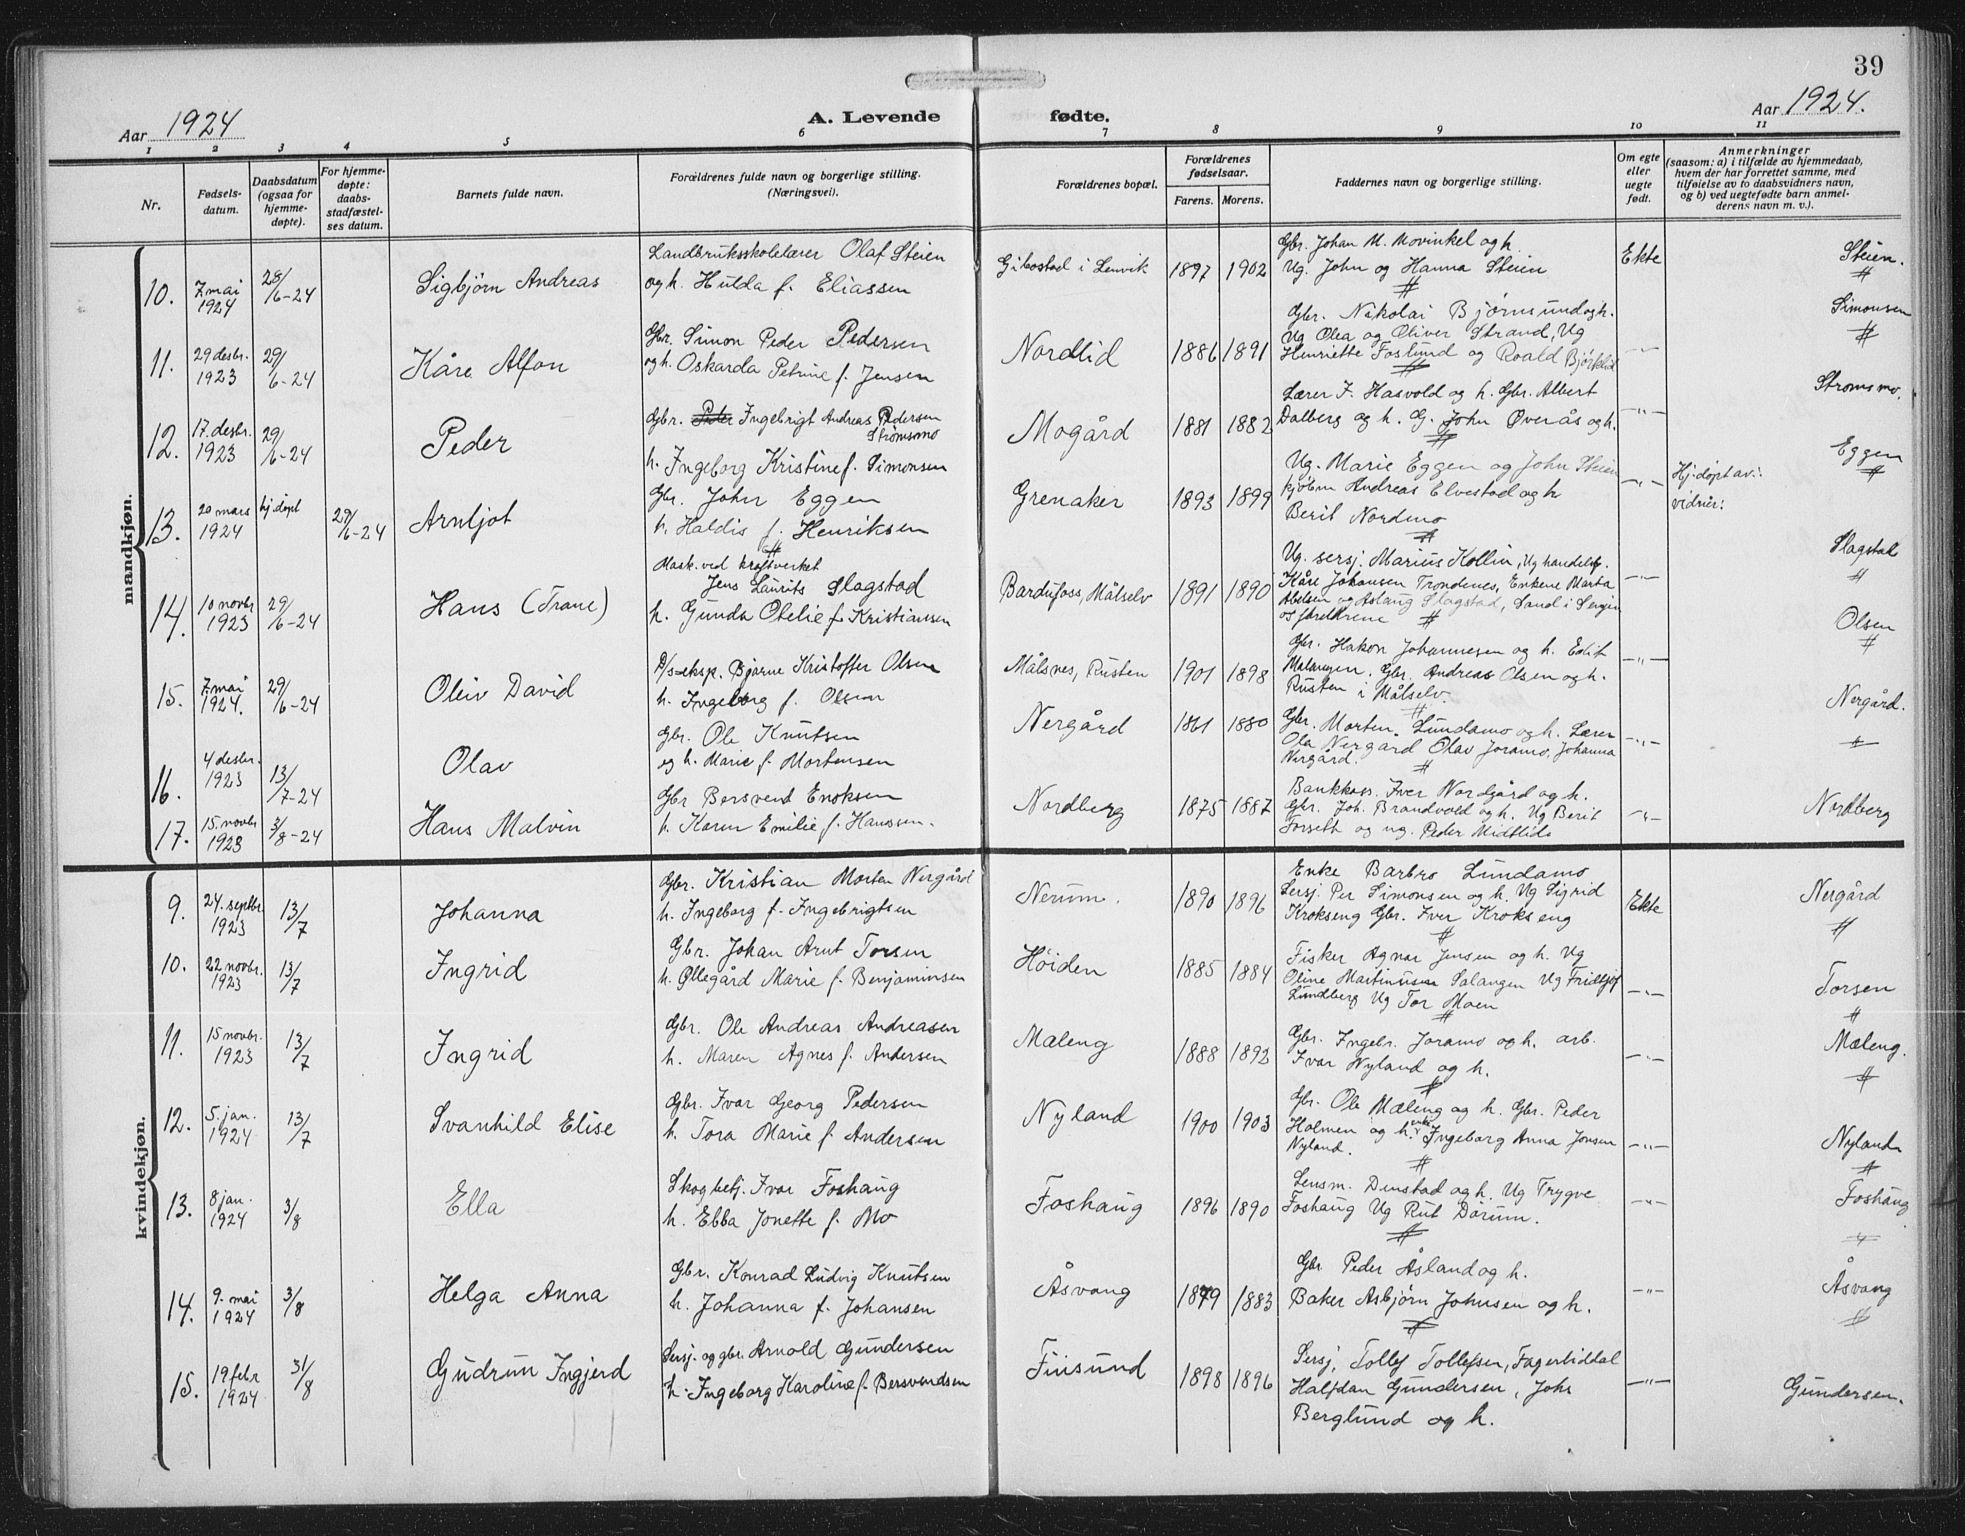 39
Aar 1924
A. Levende
fødte.
Aar 1924.
1 2 3 4 5 6 7 8 9 10 11
Nr.
Fødsels-
datum.
Daabsdatum
(ogsaa for
hjemme-
døpte).
For hjemme-
døpte:
daabs-
stadfæstel-
ses datum.
Barnets fulde navn.
Forældrenes fulde navn og borgerlige stilling.
(Næringsvei).
Forældrenes bopæl.
Forældrenes
fødselsaar.
Farens. Morens.
Faddernes navn og borgerlige stilling.
Om egte
eller
uegte
født.
Anmerkninger
(saasom: a) i tilfælde av hjemmedaab,
hvem der har forrettet samme, med
tilføielse av to daabsvidners navn,
og b) ved uegtefødte barn anmel-
derens navn m. v.).
mandkjøn.
10. 7 mai
1924
28/6-24
Sigbjörn Andreas
Landbruksskolelærer Olaf Steien
og h. Hulda f. Eliassen
Gibostad i Lenvik 1897 1902
Gbr. Johan M. Movinkel og h.
Ug. John og Hanna Steien
Ekte
Steien.
11. 29 desbr.
1923
29/6-24
Kåre Alfon
Gbr. Simon Peder Pedersen
og h. Oskarda Petrine f. Jensen
Nordlid 1886 1891
Gbr. Nikolai Bjørnsund og h.
Ug Olea og Oliver Strand, Ug
Henriette Foslund og Roald Bjørklid
-"-
Simonsen
12. 17. desbr.
1923
29/6-24
Peder
Gbr. Peder Ingebrigt Andreas Pedersen
Strömsmo
h. Ingeborg Kristine f. Simonsen
Mogård 1881 1882
Lærer F. Hasvold og h. Gbr. Albert
Dalberg og h. G. John Øverås og h.
-"-
Stromsmo.
13. 20 mars
1924
hj. døpt
29/6-24
Arnljot
Gbr. John Eggen
h. Haldis f. Henriksen
Grenaker 1893 1899
Ug. Marie Eggen og John Steien
kjöbm Andreas Elvestad og h
Berit Nordmo
-"-
Hj. døpt av:
vidner:
Eggen
14. 10 novbr
1923
29/6-24
Hans (Trane)
Mask. ved kraftverket
Jens Laurits Slagstad
h. Gunda Otelie f. Kristiansen
Bardufoss, Målselv 1891 1890
Ug. sersj. Marius Kollin, Ug handelsb.
Kåre Johansen Trondenes, Enkene Marta
Abelsen og Aslaug Slagstad, Sand i Sergin
og foreldrene
-"-
Slagstad
15. 7. mai
1924.
29/6-24
Oleiv David
D/s.eksp. Bjarne Kristoffer Olsen
h. Ingeborg f. Olsen
Målsnes, Rusten 1901 1898
Gbr. Hakon Johannesen og h. Edit
Malangen. Gbr. Andreas Olsen og h.
Rusten i Målselv.
-"-
Olsen
16. 4 desbr.
1923
13/7-24
Olav
Gbr. Ole Knutsen
og h. Marie f. Mortensen
Nergård 1861 1880
Gbr. Morten Lundamo og h. Lærer
Ola Nergård Olav Joramo, Johanna
Nergård.
-"-
Nergård.
17. 15. novbr
1923
3/8-24
Hans Malvin
Gbr Bersvend Enoksen
h. Karen Emilie f. Hanssen.
Nordberg 1875 1887
Bankkass. Iver Nordgård og h.
Gbr. Joh. Brandvold og h. Ug Berit
Forseth og ug. Peder Midtlid
-"-
Nordberg
kvindekjøn.
9. 24. septbr.
1923
13/7
Johanna
Gbr. Kristian Morten Nergård
h. Ingeborg f. Ingebrigtsen
Nerum. 1890 1896
Enke Barbro Lundamo
Sersj. Per Simonsen og h. Ug Sigrid
Krokseng Gbr. Iver Krokseng
Ekte
Nergård
10. 22 novbr.
1923
13/7
Ingrid
Gbr. Johan Arnt Torsen
h. Øllegård Marie f. Benjaminsen
Höiden 1885 1884
Fisker Agnar Jensen og h. Ug
Oline Martinusen Salangen Ug Fridtjof
Lundberg Ug Tor Moen
-"-
Torsen
11. 15 novbr.
1923
13/7
Ingrid
Gbr. Ole Andreas Andreasen
h. Maren Agnes f. Andersen
Mæleng 1888 1892
Gbr. Ingebr. Joramo og h. arb.
Ivar Nyland og h.
-"-
Mæleng.
12. 5. jan.
1924
13/7
Svanhild Elise
Gbr. Ivar Georg Pedersen
h. Tora Marie f. Andersen
Nyland 1900 1903
Gbr. Ole Mæleng og h. Gbr. Peder
Holmen og h. enke Ingeborg Anna Jensen
Nyland.
-"-
Nyland
13. 8 jan.
1924
3/8
Ella
Skogbetj. Ivar Foshaug
h. Ebba Jonette f. Mo
Foshaug 1896 1890
Lensm. Denstad og h. Ug Trygve
Foshaug Ug Rut Dørum.
-"-
Foshaug
14. 9. mai
1924
3/8
Helga Anna
Gbr. Konrad Ludvig Knutsen
h. Johanna f. Johansen
Åsvang 1879 1883
Gbr Peder Åsland og h.
Baker Asbjørn Johnsen og h.
-"-
Åsvang
15. 19 febr
1924
31/8
Gudrun Ingjerd
Sersj. og gbr. Arnold Gundersen
h. Ingeborg Karoline f. Bersvendsen
Finsund 1898 1896
Sersj. Tollef Tollefsen, Fagerliddal
Halfdan Gundersen, Johs
Berglund og h.
-"-
Gundersen.